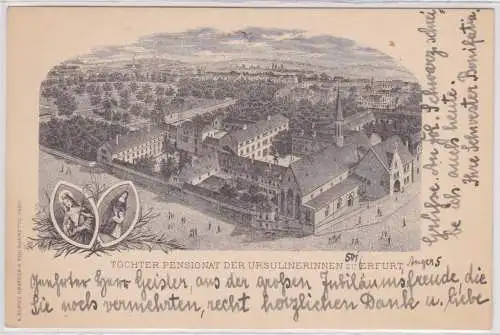 TÖCHTER PENSIONAT DER URSULINERINNEN ZU ERFURT,
Anger 5
Geehrter Herr Geisler, aus der großen Jubiläumsfreude die
Sie noch vermehrten, recht herzlichen Dank u. Liebe
be als auch heute.
Ihre Schwester Bonifatia